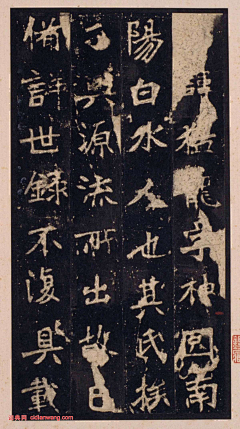 諱猛龍字神囧南
陽白水人也其氏族
分興源流所出故已
備詳世錄不復具載
cidianwang.com